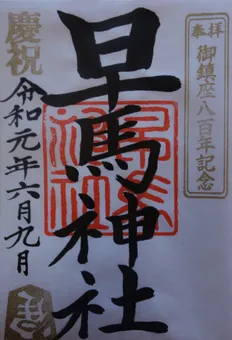 奉拝
御鎮座八百年記念
早馬神社
慶祝
令和元年六月九日